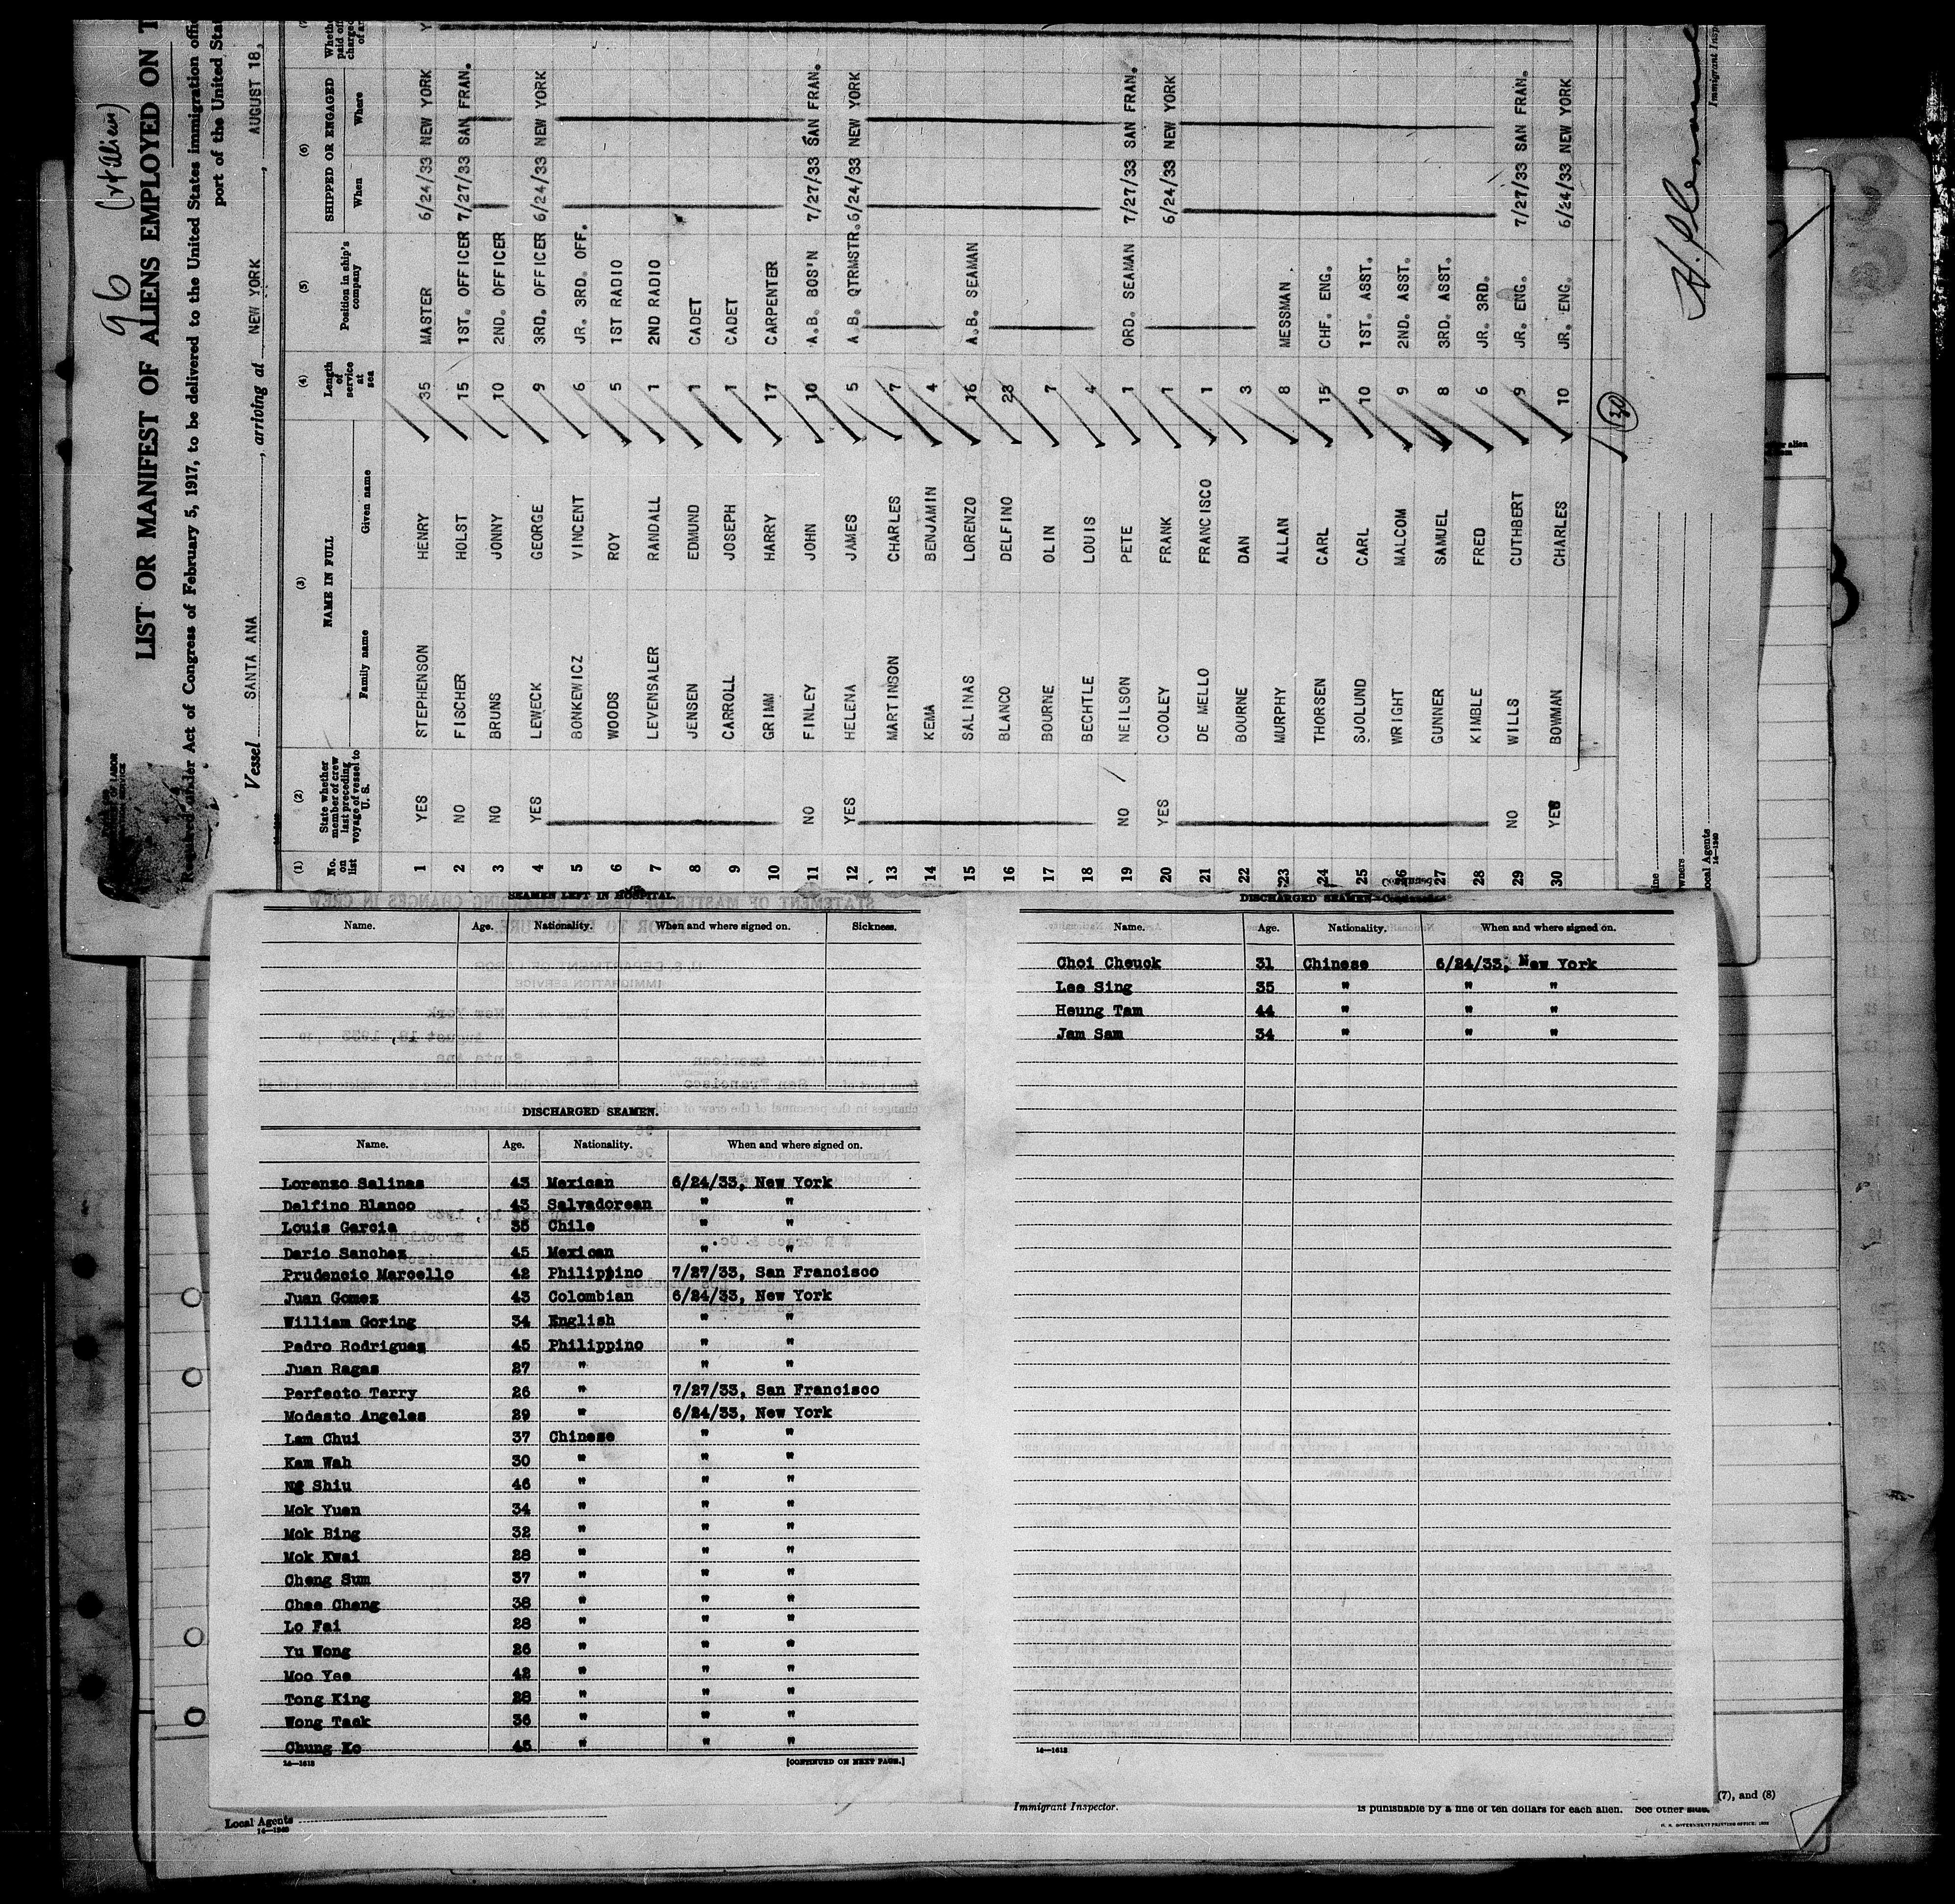 96
LIST OR MANIFEST OF ALIENS EMPLOYED ON T
Required under Act of Congress of February 5, 1917, to be delivered to the United States immigration offi
port of the United Sta
Vessel SANTA ANA, arriving at NEW YORK, AUGUST 18,
(1) (2) (3) (4) (5) (6)
No. on list State whether member of crew last preceding voyage of vessel to U. S. NAME IN FULL Length of service at sea Position in ship's company SHIPPED OR ENGAGED
Family name Given name When Where
1 YES STEPHENSON HENRY 35 MASTER 6/24/33 NEW YORK
2 NO FISCHER HOLST 15 1ST. OFFICER 7/27/33 SAN FRAN.
3 NO BRUNS JONNY 10 2ND. OFFICER
4 YES LEWECK GEORGE 9 3RD. OFFICER 6/24/33 NEW YORK
5 BONKEWICZ VINCENT 6 JR. 3RD. OFF.
6 WOODS ROY 5 1ST RADIO
7 LEVENSALER RANDALL 1 2ND RADIO
8 JENSEN EDMUND 1 CADET
9 CARROLL JOSEPH 1 CADET
10 GRIMM HARRY 17 CARPENTER
11 NO FINLEY JOHN 10 A.B. BOS'N 7/27/33 SAN FRAN.
12 YES HELENA JAMES 5 A.B. QTRMSTR. 6/24/33 NEW YORK
13 MARTINSON CHARLES 7
14 KEMA BENJAMIN 4
15 SALINAS LORENZO 16 A.B. SEAMAN
16 BLANCO DELFINO 23
17 BOURNE OLIN 7
18 BECHTLE LOUIS 4
19 NO NEILSON PETE 1 ORD. SEAMAN 7/27/33 SAN FRAN.
20 YES COOLEY FRANK 1 6/24/33 NEW YORK
21 DE MELLO FRANCISCO 1
22 BOURNE DAN 3
23 MURPHY ALLAN 8 MESSMAN
24 THORSEN CARL 15 CHF. ENG.
25 SJOLUND CARL 10 1ST. ASST.
26 WRIGHT MALCOM 9 2ND. ASST.
27 GUNNER SAMUEL 8 3RD. ASST.
28 KIMBLE FRED 6 JR. 3RD.
29 NO WILLS CUTHBERT 9 JR. ENG. 7/27/33 SAN FRAN.
30 YES BOWMAN CHARLES 10 JR. ENG. 6/24/33 NEW YORK
30
Immigrant Insp
Local Agents
14—1240
SEAMEN LEFT IN HOSPITAL
Name. Age. Nationality. When and where signed on. Sickness.
DISCHARGED SEAMEN.
Name. Age. Nationality. When and where signed on.
Lorenzo Salinas 43 Mexican 6/24/33, New York
Delfino Blanco 43 Salvadorean " "
Louis Garcia 35 Chile " "
Dario Sanchez 45 Mexican " "
Prudencio Marcello 42 Philippino 7/27/33, San Francisco
Juan Gomez 43 Colombian 6/24/33, New York
William Goring 34 English " "
Pedro Rodriguez 45 Philippino " "
Juan Ragas 27 " " "
Perfecto Tarry 26 " 7/27/33, San Francisco
Modesto Angeles 29 " 6/24/33, New York
Lam Chui 37 Chinese " "
Kam Wah 30 " " "
Ng Shiu 46 " " "
Mok Yuen 34 " " "
Mok Bing 32 " " "
Mok Kwai 28 " " "
Cheng Sum 37 " " "
Chee Cheng 38 " " "
Lo Fai 28 " " "
Yu Wong 26 " " "
Moo Yee 42 " " "
Tong King 28 " " "
Wong Taek 36 " " "
Chung Ko 45 " " "
14—1612 [CONTINUED ON NEXT PAGE.]
DISCHARGED SEAMEN—Continued
Name. Age. Nationality. When and where signed on.
Choi Cheuck 31 Chinese 6/24/33, New York
Lee Sing 35 " " "
Heung Tam 44 " " "
Jam Sam 34 " " "
14—1612
(7), and (8)
Immigrant Inspector. is punishable by a fine of ten dollars for each alien. See other side.
Local Agents
14—1240